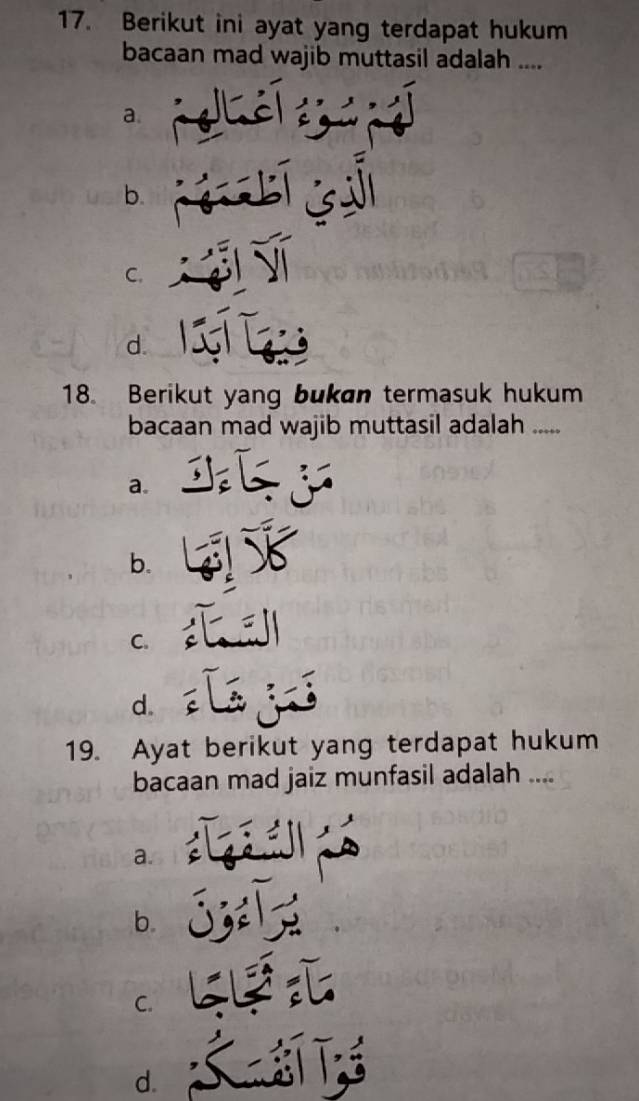 17. Berikut ini ayat yang terdapat hukum
bacaan mad wajib muttasil adalah ....
a. لَهُمْ سُوْٓءُ أَعْمَالِهِمْ
b. الَّذِيْٓ أَطْعَمَهُمْ
c. أَلَآ إِنَّهُمْ
d. فِيْهَآ أَبَدًا
18. Berikut yang bukan termasuk hukum
bacaan mad wajib muttasil adalah .....
a. مَنْ جَآءَكَ
b. كَلَّآ إِنَّهَا
c. السَّمَآءُ
d. فَمَنْ شَآءَ
19. Ayat berikut yang terdapat hukum
bacaan mad jaiz munfasil adalah ....
a. هُمُ السُّفَهَآءُ
b. يُرَآءُوْنَ
c. مَآءً ثَجَّاجًا
d. قُوْٓا أَنْفُسَكُمْ